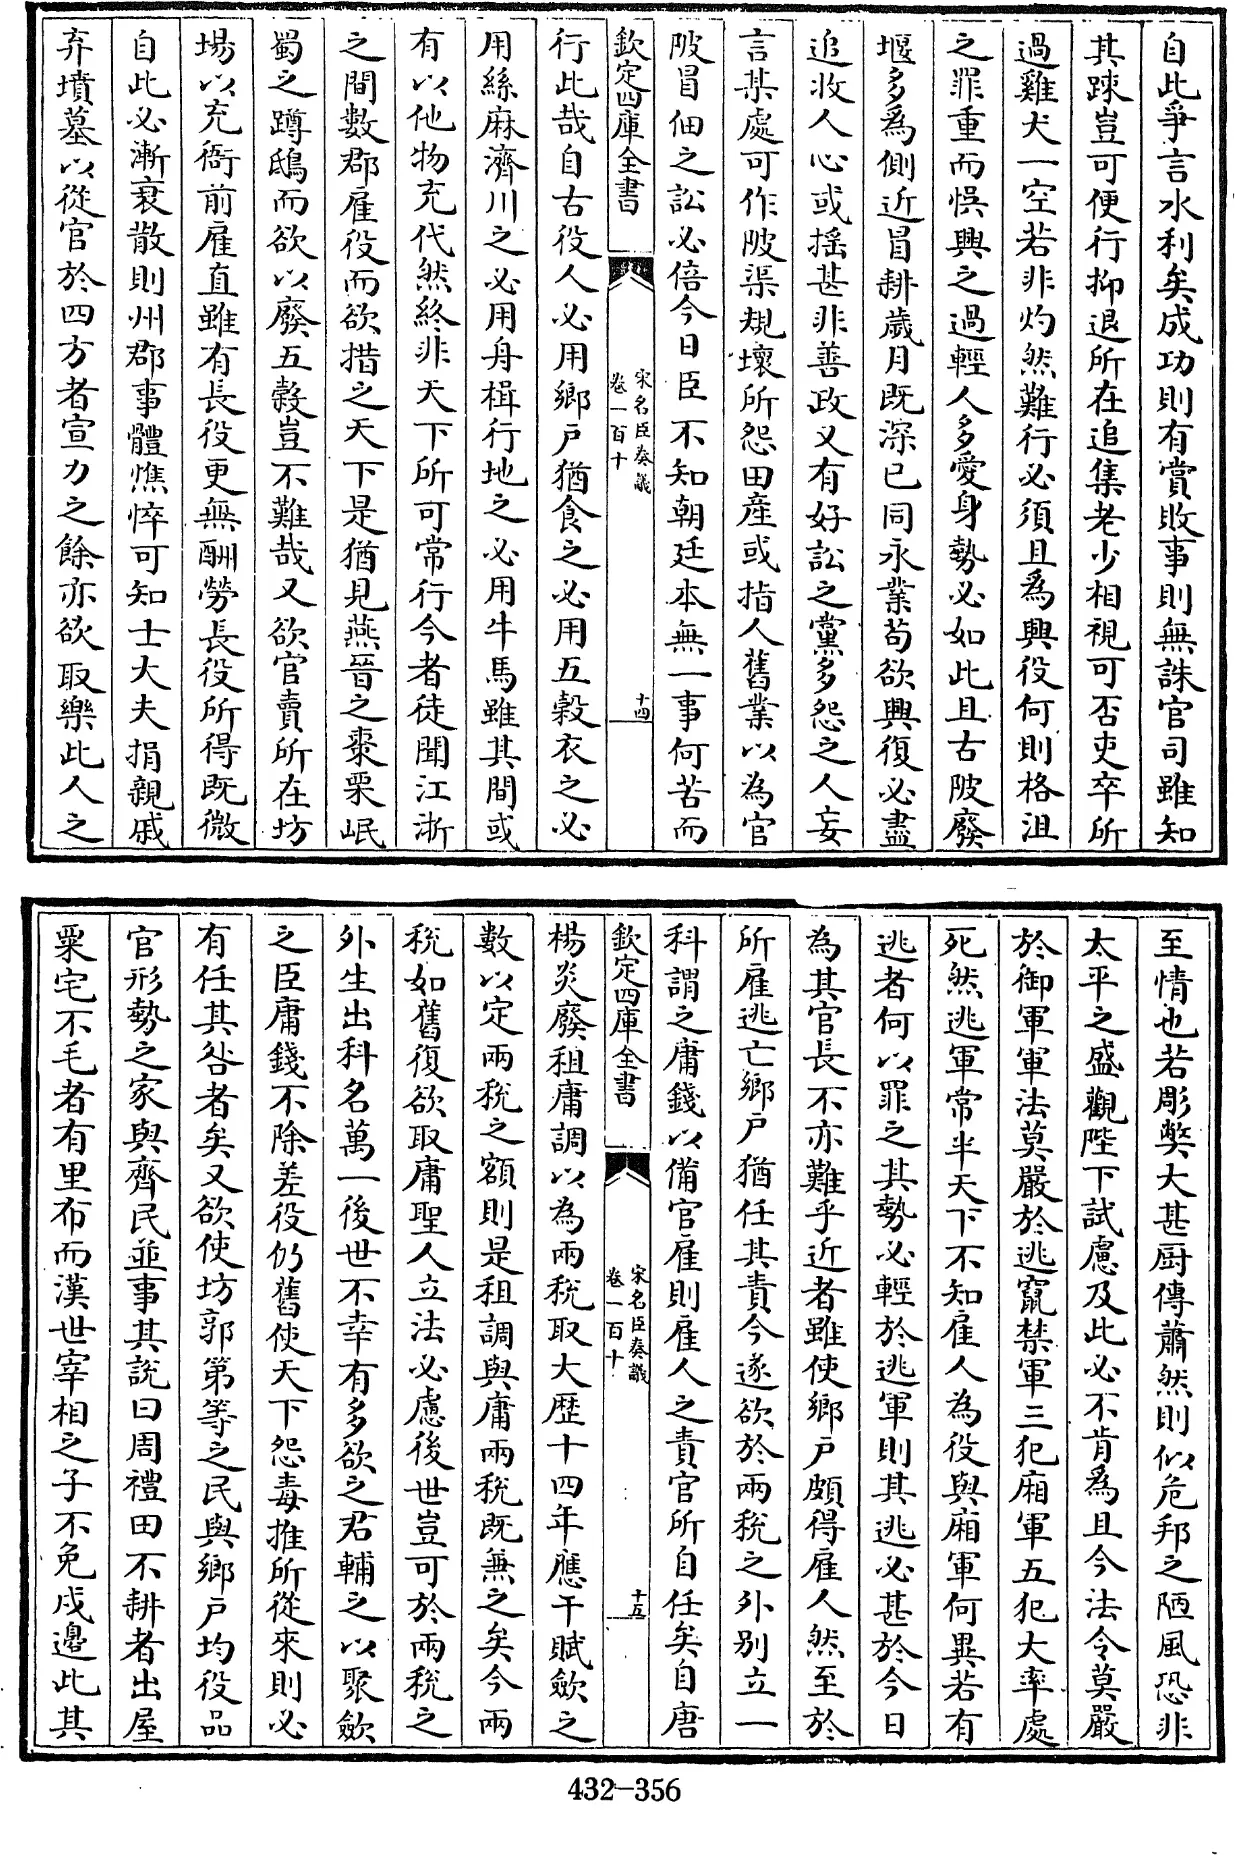 自此爭言水利矣成功則有賞敗事則無誅官司雖知
其踈豈可便行抑退所在追集老少相視可否吏卒所
過雞犬一空若非灼然難行必須且爲興役何則格沮
之罪重而悞興之過輕人多愛身勢必如此且古陂廢
堰多爲側近冒耕歲月既深已同永業苟欲興復必盡
追收人心或搖甚非善政又有好訟之黨多怨之人妄
言某處可作陂渠規壞所怨田產或指人舊業以為官
陂冒佃之訟必倍今日臣不知朝廷本無一事何苦而
欽定四庫全書
宋名臣奏議
卷一百十
十四
行此哉自古役人必用鄉戶猶食之必用五穀衣之必
用絲麻濟川之必用舟楫行地之必用牛馬雖其間或
有以他物充代然終非天下所可常行今者徒聞江浙
之間數郡雇役而欲措之天下是猶見燕晉之棗栗岷
蜀之蹲鴟而欲以廢五穀豈不難哉又欲官賣所在坊
場以充衙前雇直雖有長役更無酬勞長役所得既微
自此必漸衰散則州郡事體憔悴可知士大夫捐親戚
弃墳墓以從官於四方者宣力之餘亦欲取樂此人之
至情也若彫弊大甚厨傳蕭然則似危邦之陋風恐非
太平之盛觀陛下試慮及此必不肯爲且今法令莫嚴
於御軍軍法莫嚴於逃竄禁軍三犯廂軍五犯大率處
死然逃軍常半天下不知雇人為役與廂軍何異若有
逃者何以罪之其勢必輕於逃軍則其逃必甚於今日
為其官長不亦難乎近者雖使鄉戶頗得雇人然至於
所雇逃亡鄉戶猶任其責今遂欲於兩稅之外別立一
科謂之庸錢以備官雇則雇人之責官所自任矣自唐
欽定四庫全書
宋名臣奏議
卷一百十
十五
楊炎廢租庸調以為兩稅取大歷十四年應干賦斂之
數以定兩稅之額則是租調與庸兩稅既兼之矣今兩
稅如舊復欲取庸聖人立法必慮後世豈可於兩稅之
外生出科名萬一後世不幸有多欲之君輔之以聚斂
之臣庸錢不除差役仍舊使天下怨毒推所從來則必
有任其咎者矣又欲使坊郭第等之民與鄉戶均役品
官形勢之家與齊民並事其說曰周禮田不耕者出屋
粟宅不毛者有里布而漢世宰相之子不免戍邊此其
432-356